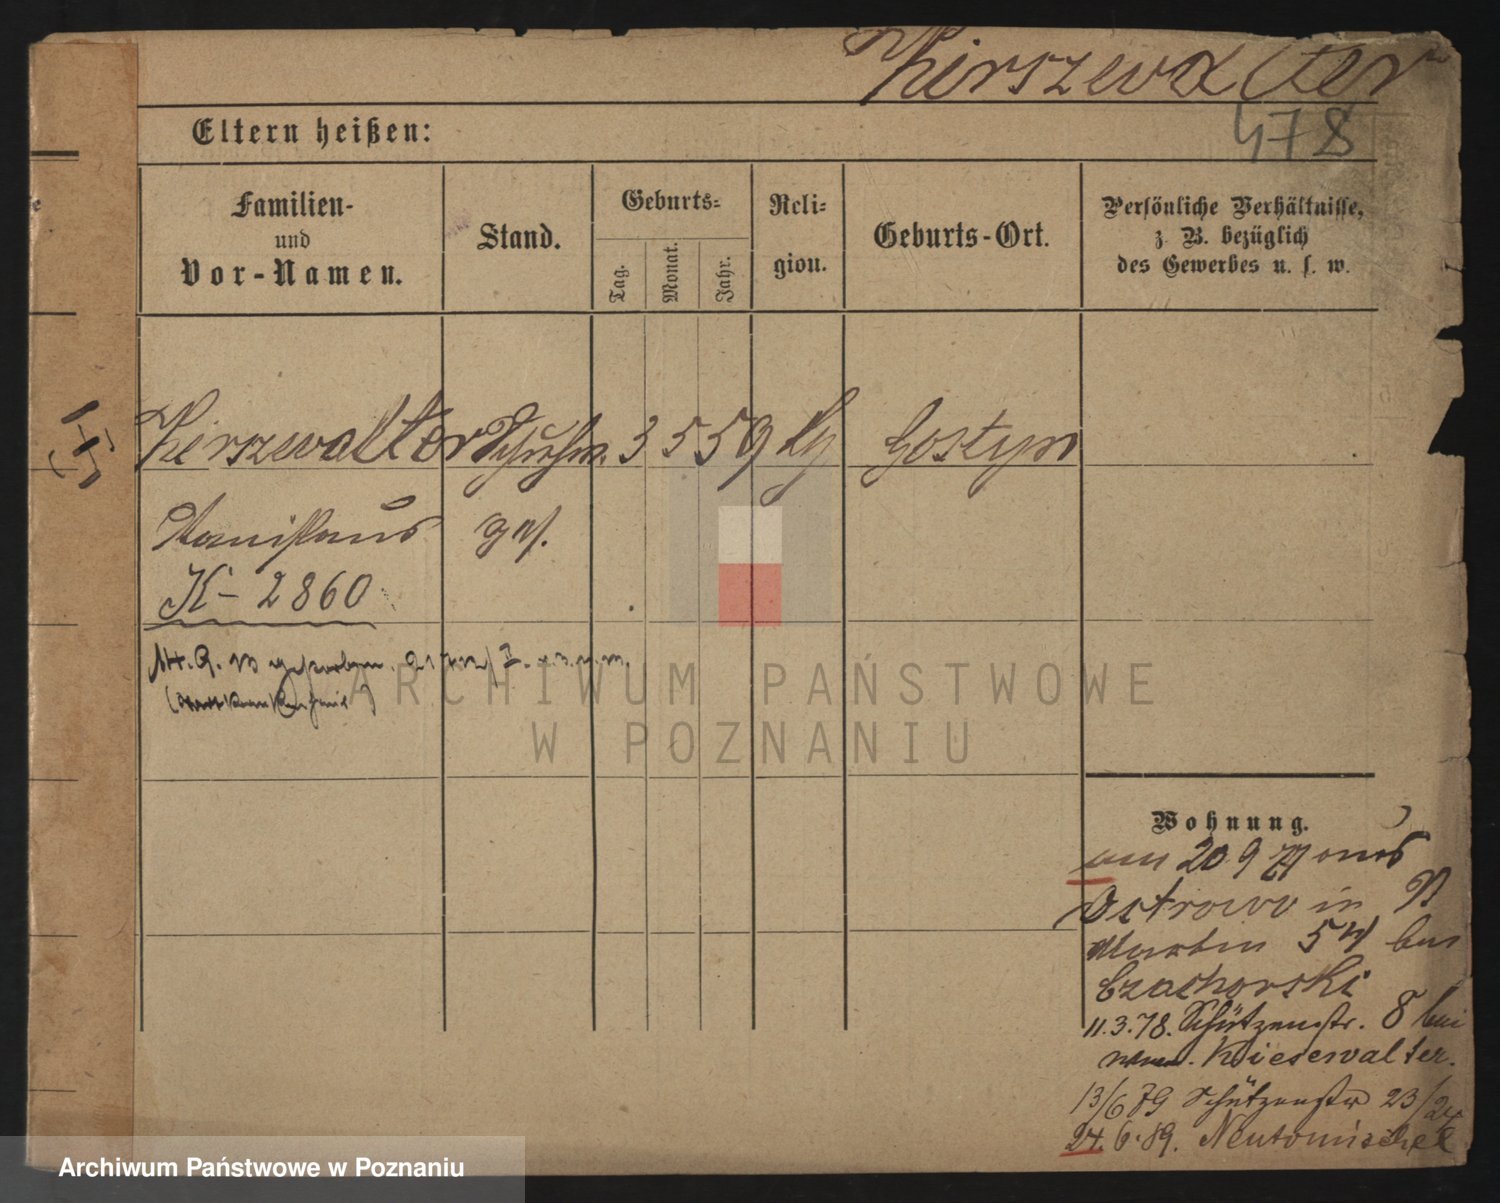 Kirszewalter
478
Eltern heißen:
Familien-
und
Vor-Namen.
Stand.
Geburts-
Tag.
Monat.
Jahr.
Reli-
gion.
Geburts-Ort.
Persönliche Verhältnisse,
z. B. bezüglich
des Gewerbes u. s. w.
Kirszewalter Schuhm. 3 5 59 Gostyn
Stanislaus ges.
K- 2860
ARCHIWUM PAŃSTWOWE
W POZNANIU
Wohnung.
am 20 9 77 aus
Ostrowo in
Martin 54 bei
Czachorski
11.3.78. Schützenstr. 8 bei
Kiesewalter.
13/6 79 Schützenstr 23/24
24. 6. 89. Neutomischel
Archiwum Państwowe w Poznaniu